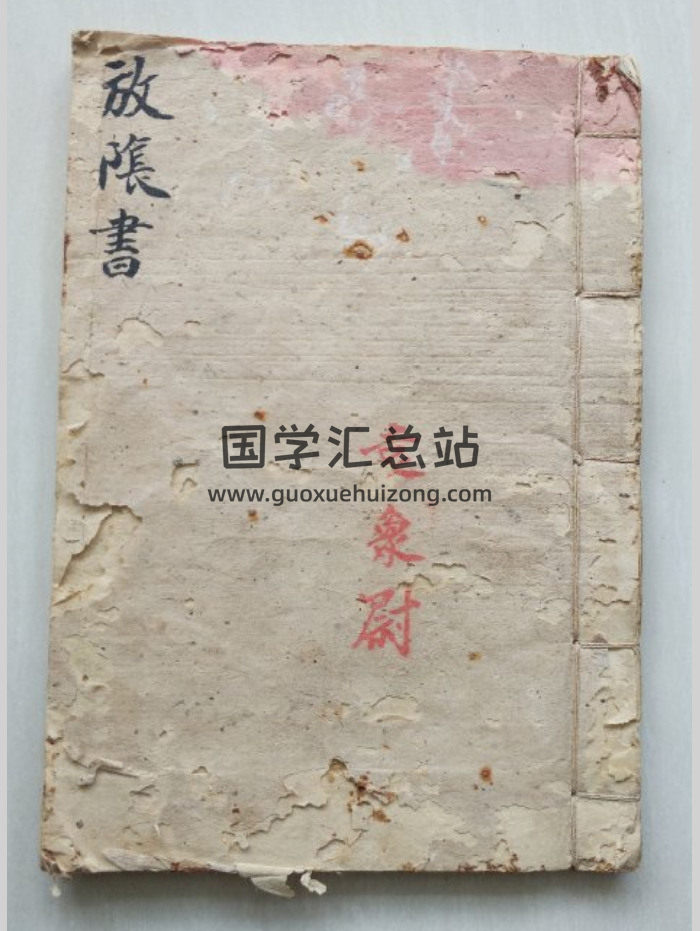 放隂書
国学汇总站
www.guoxuehuizong.com
象尉